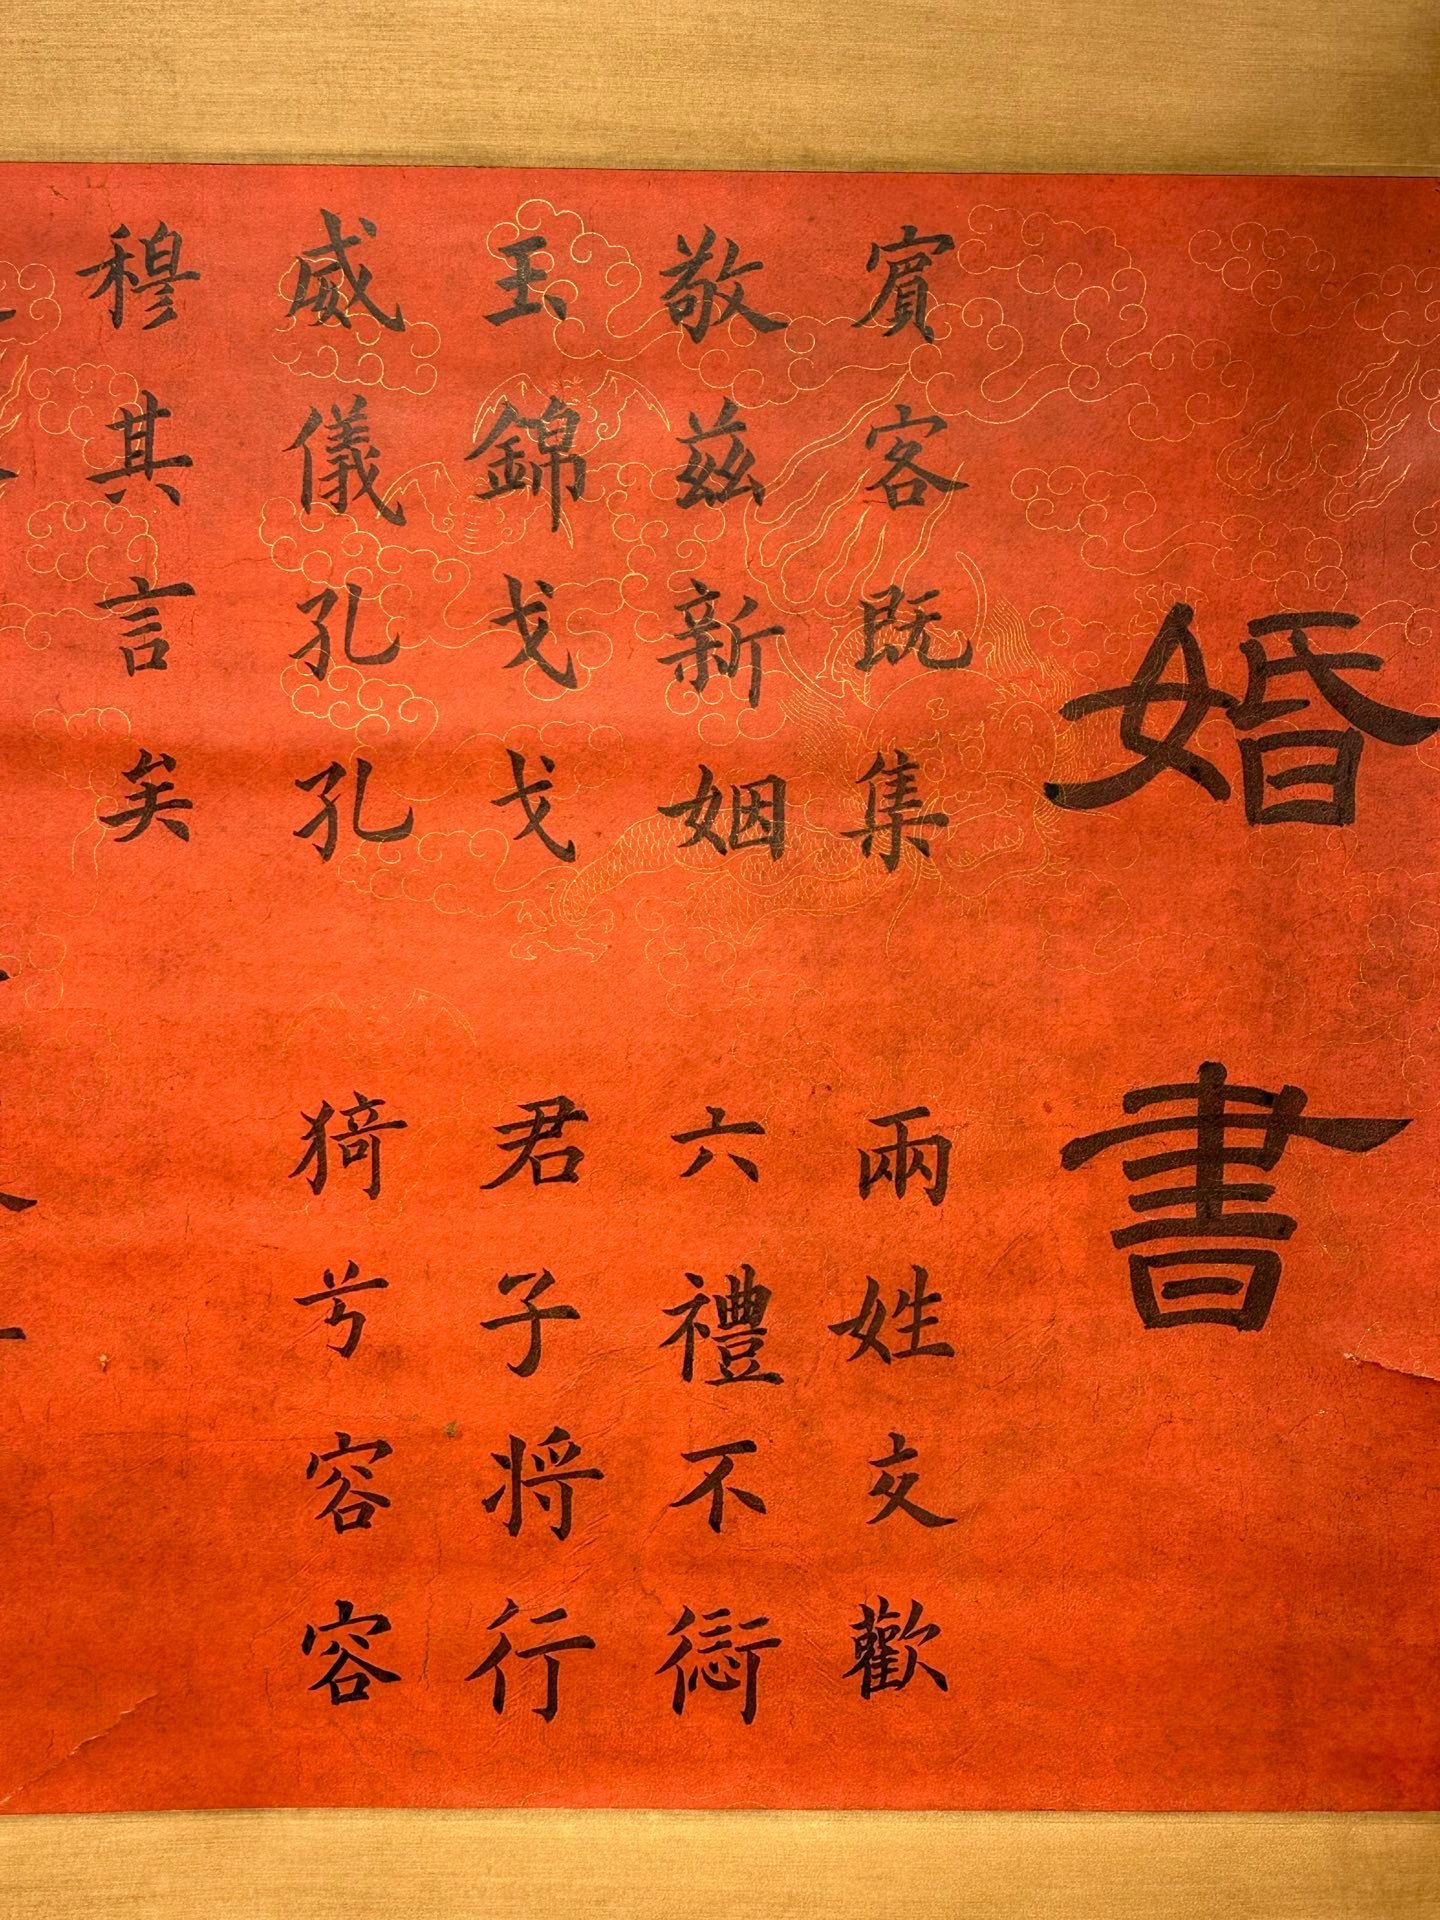 婚書
賔客既集 兩姓交歡
敬茲新姻 六禮不愆
玉錦戈戈 君子将行
威儀孔孔 猗兮容容
穆其言矣